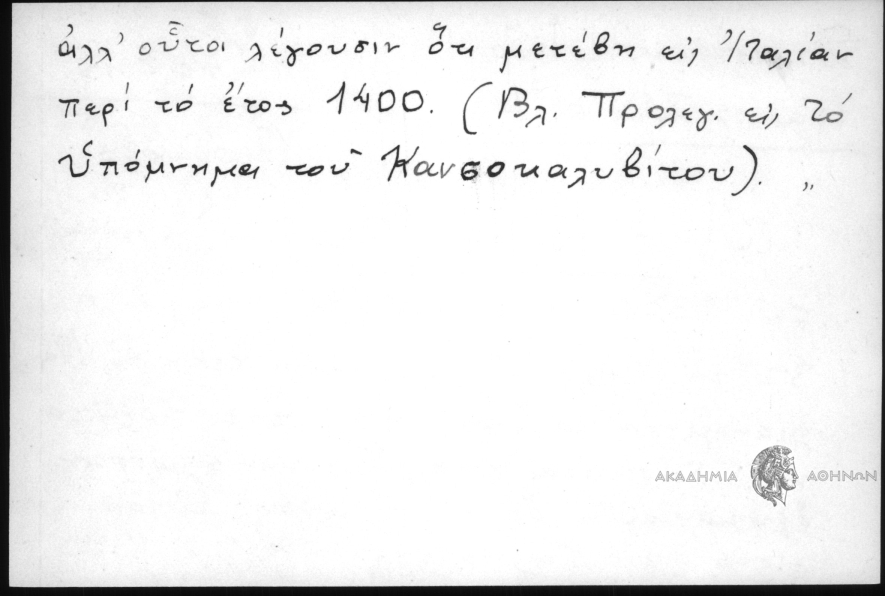 ἀλλ' οὗτοι λέγουσιν ὅτι μετέβη εἰς Ἰταλίαν
περί τό ἔτος 1400. (Βλ. Προλεγ. εἰς τό
Ὑπόμνημα τοῦ Καυσοκαλυβίτου). „
ΑΚΑΔΗΜΙΑ ΑΘΗΝΩΝ